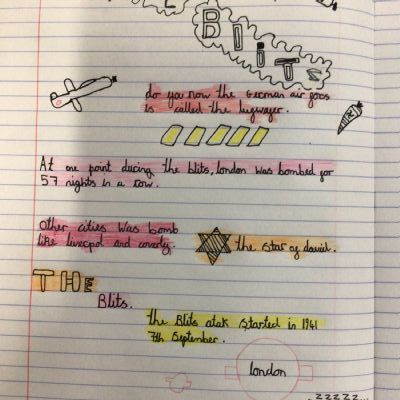 E
Blits
do you now the German air focs
is called the lufwafer.
At one point during the blits, london was bombed for
57 nights in a row.
Other cities was bomb
like liverpol and
the star of david.
THE
Blits.
the Blits atak started in 1941
7th September.
london
zzzzz...